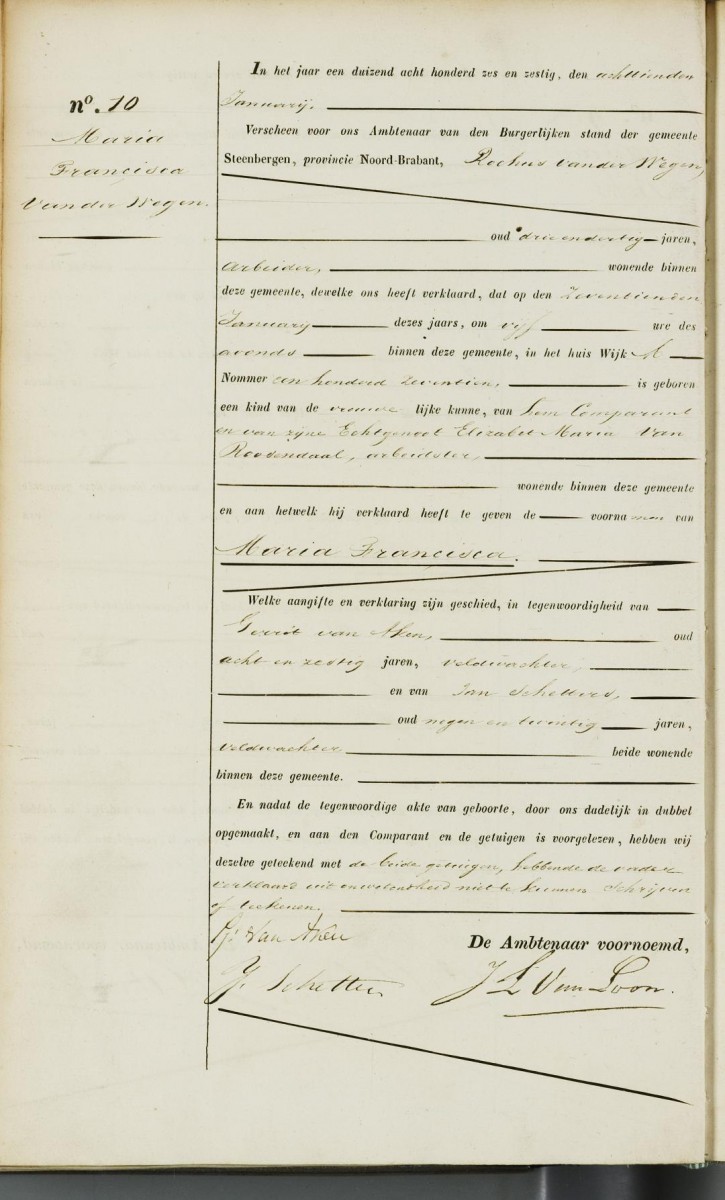 nº. 10
Maria
Francisca
van der Wegen.
In het jaar een duizend acht honderd zes en zestig, den achttienden
Januarij.
Verscheen voor ons Ambtenaar van den Burgerlijken stand der gemeente
Steenbergen, provincie Noord-Brabant, Rochus van der Wegen,
oud drie en dertig jaren,
arbeider, wonende binnen
deze gemeente, dewelke ons heeft verklaard, dat op den zeventienden
January dezes jaars, om vijf ure des
avonds binnen deze gemeente, in het huis Wijk
Nommer een honderd zeventien, is geboren
een kind van de vrouwe lijke kunne, van hem Comparant
en van zijne Echtgenoot Elizabet Maria Van
Roosendaal, arbeidster,
wonende binnen deze gemeente
en aan hetwelk hij verklaard heeft te geven de voorna men van
Maria Francisca.
Welke aangifte en verklaring zijn geschied, in tegenwoordigheid van
Gerrit van Aken, oud
acht en zestig jaren, veldwachter,
en van Jan Schetters,
oud negen en twintig jaren,
veldwachter beide wonende
binnen deze gemeente.
En nadat de tegenwoordige akte van geboorte, door ons dadelijk in dubbel
opgemaakt, en aan den Comparant en de getuigen is voorgelezen, hebben wij
dezelve geteekend met de beide getuigen, hebbende de vader
verklaard uit onwetendheid niet te kunnen schrijven
of teekenen.
G. Van Aken
De Ambtenaar voornoemd,
J. Schetters
J L Van Loon.